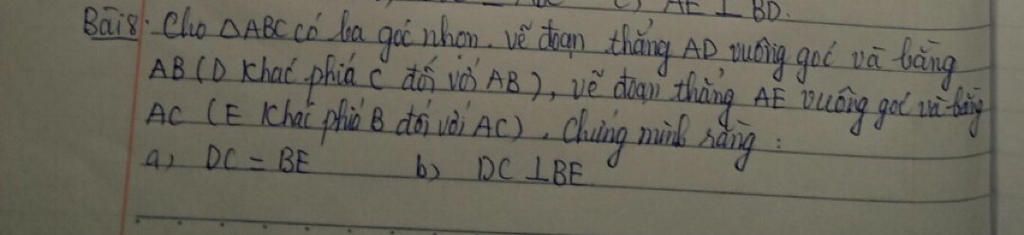 c) AE ⊥ BD.
Bài 8: Cho ΔABC có ba góc nhọn. vẽ đoạn thẳng AD vuông góc và bằng
AB (D khác phiá C đối với AB), vẽ đoạn thẳng AE vuông góc và bằng
AC (E khác phiá B đối với AC). Chứng minh rằng :
a) DC = BE b) DC ⊥ BE